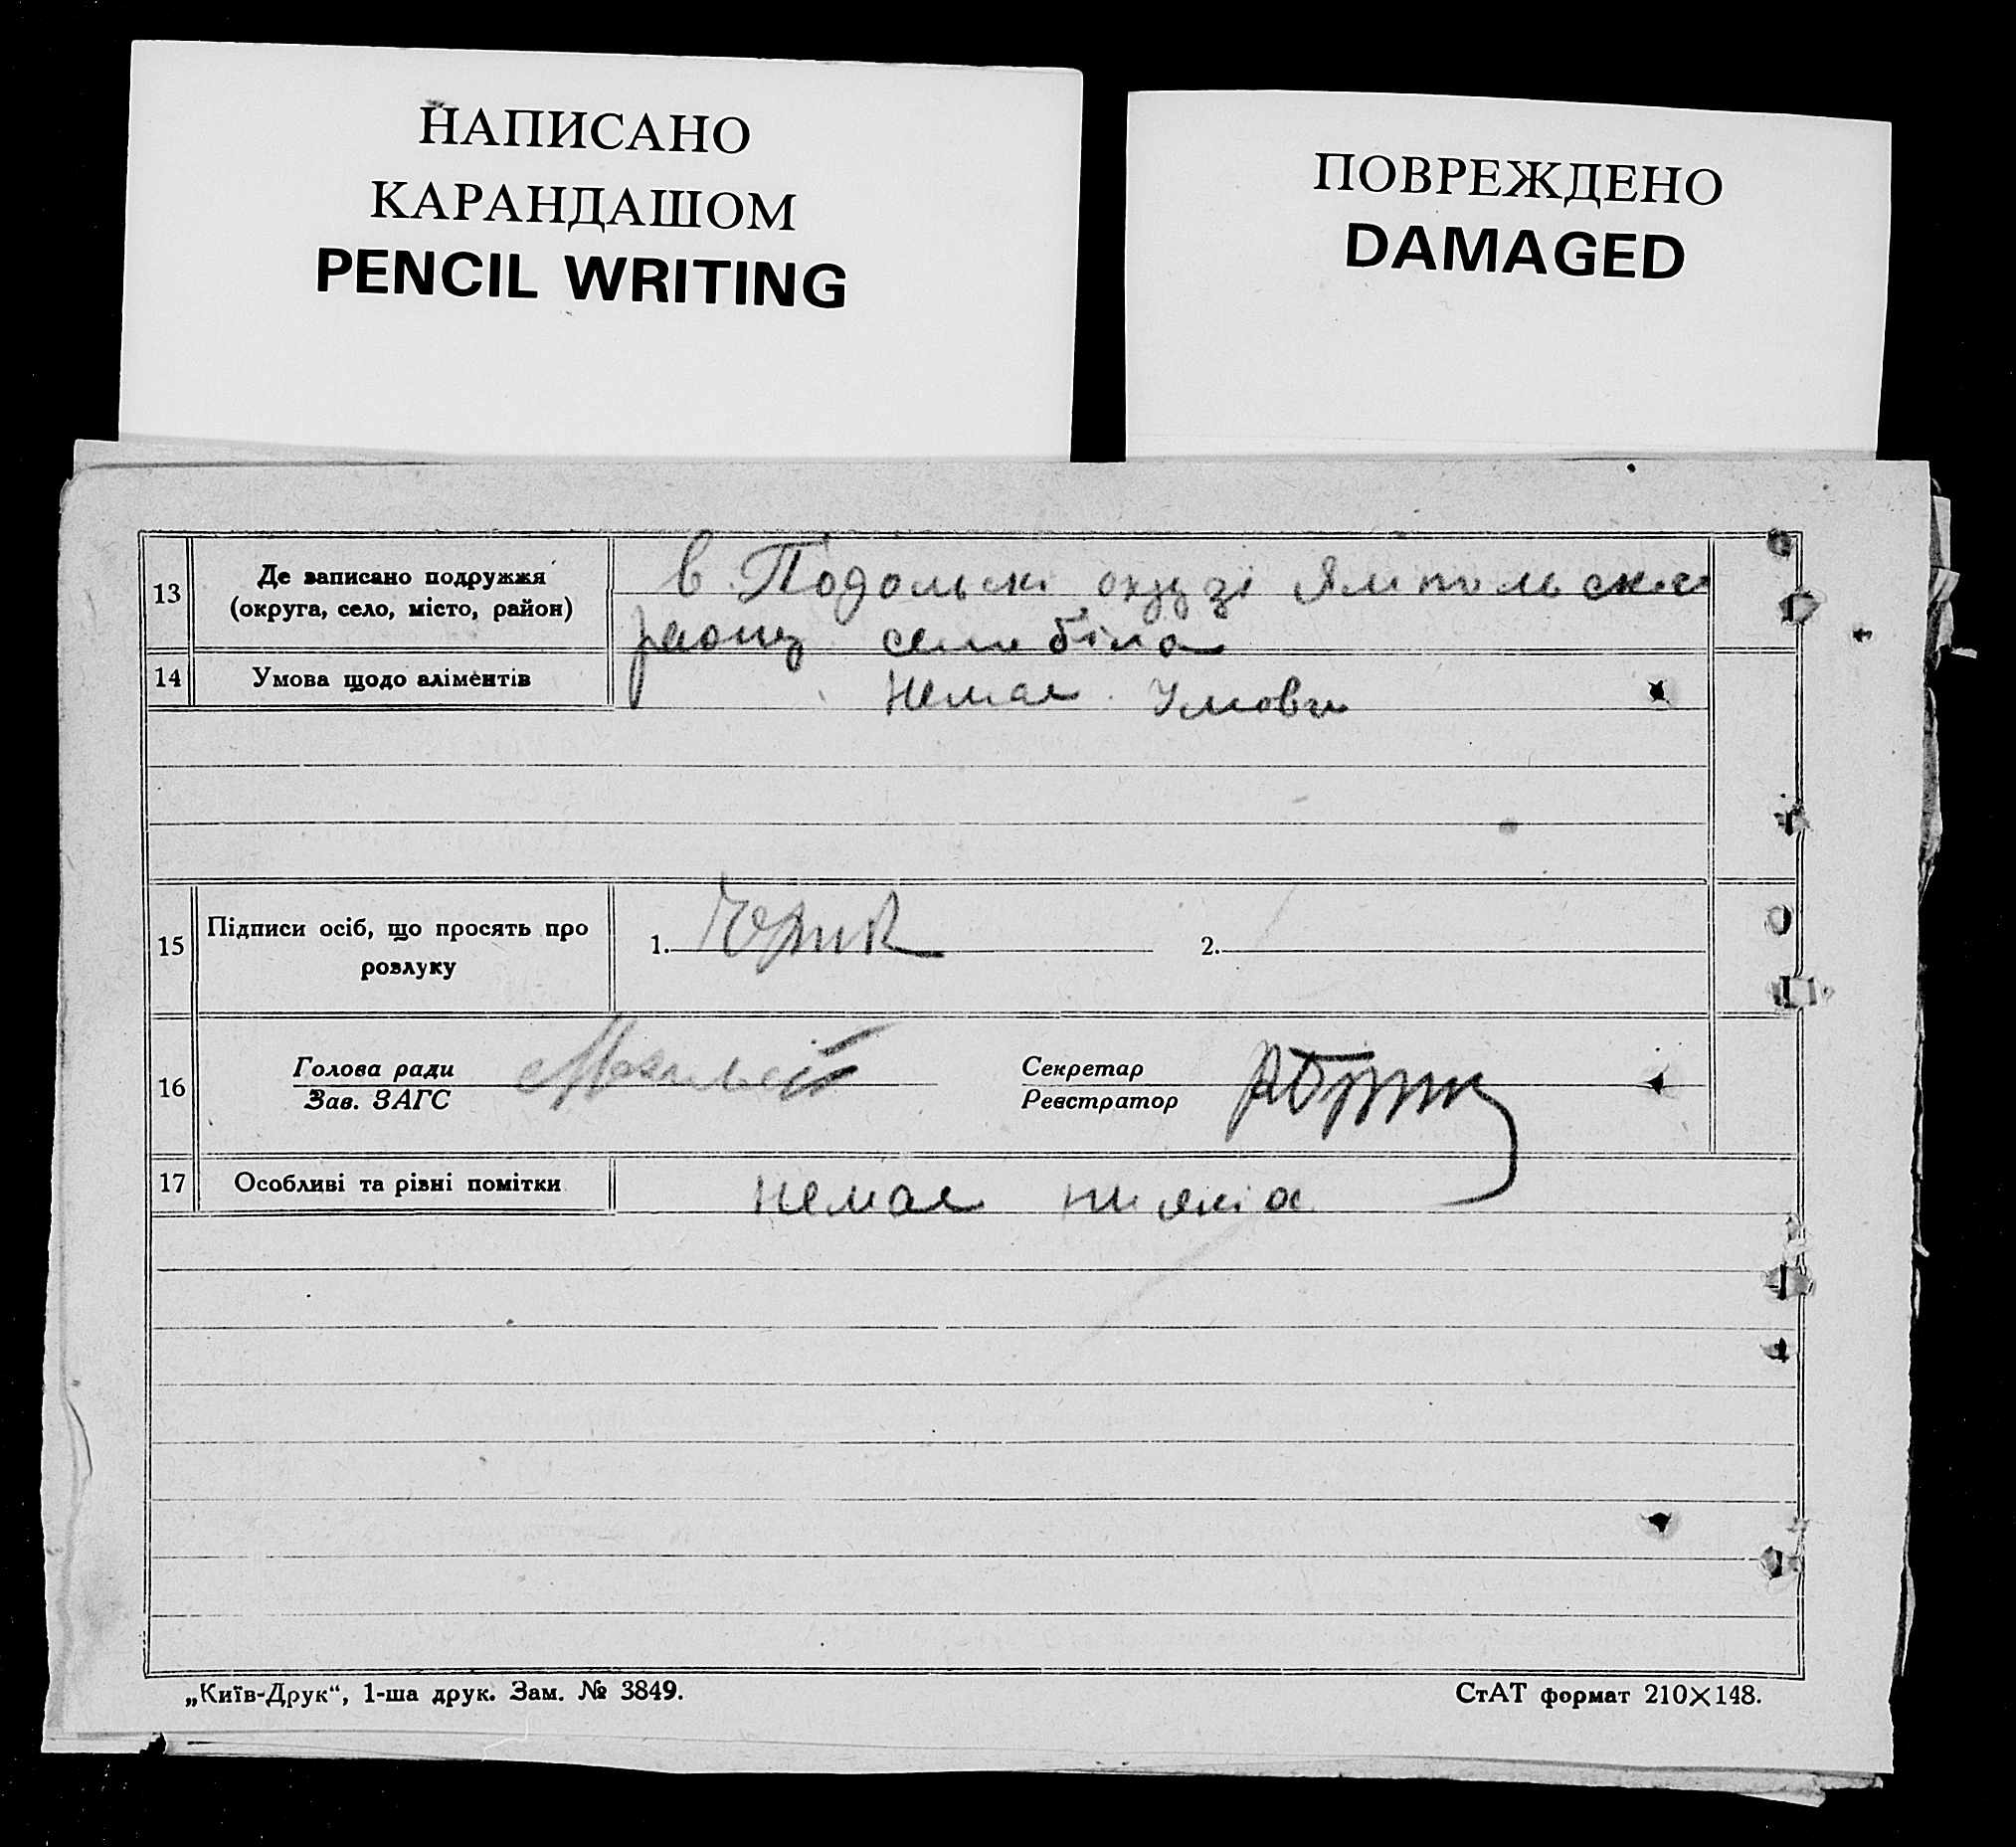 НАПИСАНО
КАРАНДАШОМ
PENCIL WRITING
ПОВРЕЖДЕНО
DAMAGED
13
Де записано подружжя
(округа, село, місто, район)
в Подольскі окрузі Ямпольско
району село біла
14
Умова щодо аліментів
Немае Умови
15
Підписи осіб, що просять про
розлуку
1.
2.
16
Голова ради
Зав. ЗАГС
Секретар
Реєстратор
17
Особливі та різні помітки
немае ни якіх
„Київ-Друк“, 1-ша друк. Зам. № 3849.
СтАТ формат 210×148.